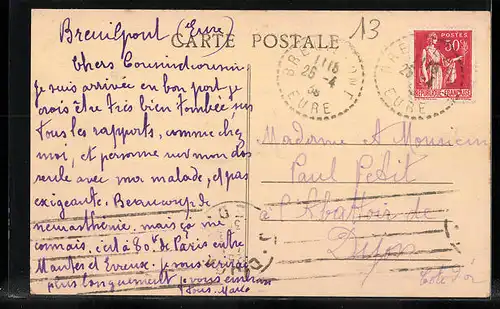 Breuilpont (Eure)
13
CARTE POSTALE
Chers Cousin cousine
je suis arrivée en bon port je
crois être très bien tombée sur
tous les rapports, comme chez
moi, et personne sur mon dos
seule avec ma malade, et pas
exigeante. Beaucoup de
neurasthénie, mais ça me
connais, c'est à 80 k de Paris entre
Mantes et Evreux. je vous écrirai
plus longuement, je vous embrasse
tous.
11 15
25 -4
EURE
POSTES
50c
REPUBLIQUE FRANÇAISE
Madame & Monsieur
Paul Petit
à l'Abattoir de
Dijon
Côte d'or